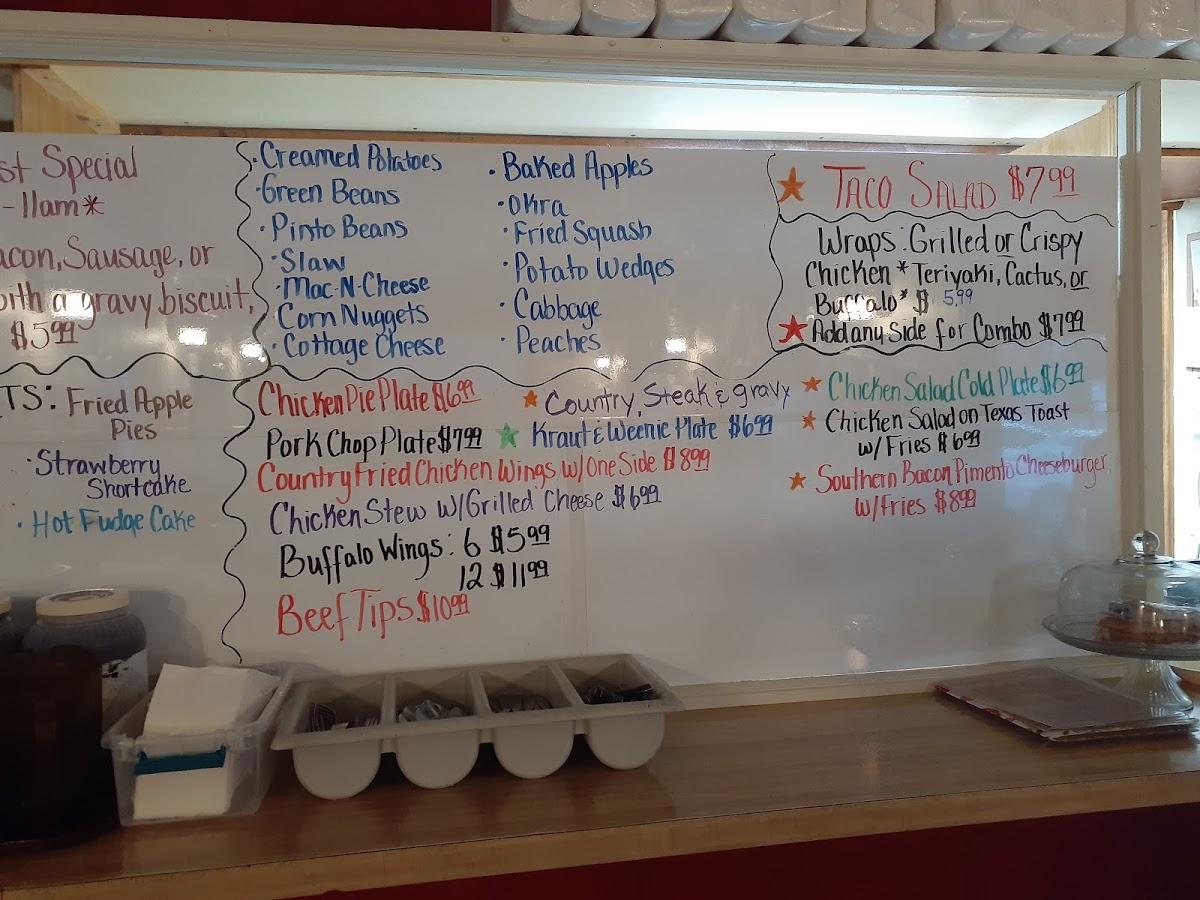 st Special
-11am*
acon, Sausage, or
with a gravy biscuit,
$5.99
• Creamed Potatoes
• Green Beans
• Pinto Beans
• Slaw
• Mac-N-Cheese
Corn Nuggets
• Cottage Cheese
• Baked Apples
• Okra
• Fried Squash
• Potato Wedges
• Cabbage
• Peaches
Taco Salad $7.99
Wraps: Grilled or Crispy
Chicken * Teriyaki, Cactus, or
Buffalo* $ 5.99
Add any side for Combo $7.99
TS: Fried Apple
Pies
• Strawberry
Shortcake
• Hot Fudge Cake
Chicken Pie Plate $6.99
Pork Chop Plate $7.99
Country Fried Chicken Wings w/One Side $8.99
Chicken Stew w/Grilled Cheese $6.99
Buffalo Wings: 6 $5.99
12 $11.99
Beef Tips $10.99
Country, Steak & gravy
Kraut & Weenie Plate $6.99
Chicken Salad Cold Plate $6.99
Chicken Salad on Texas Toast
w/ Fries $6.99
Southern Bacon Pimento Cheeseburger
w/Fries $8.99